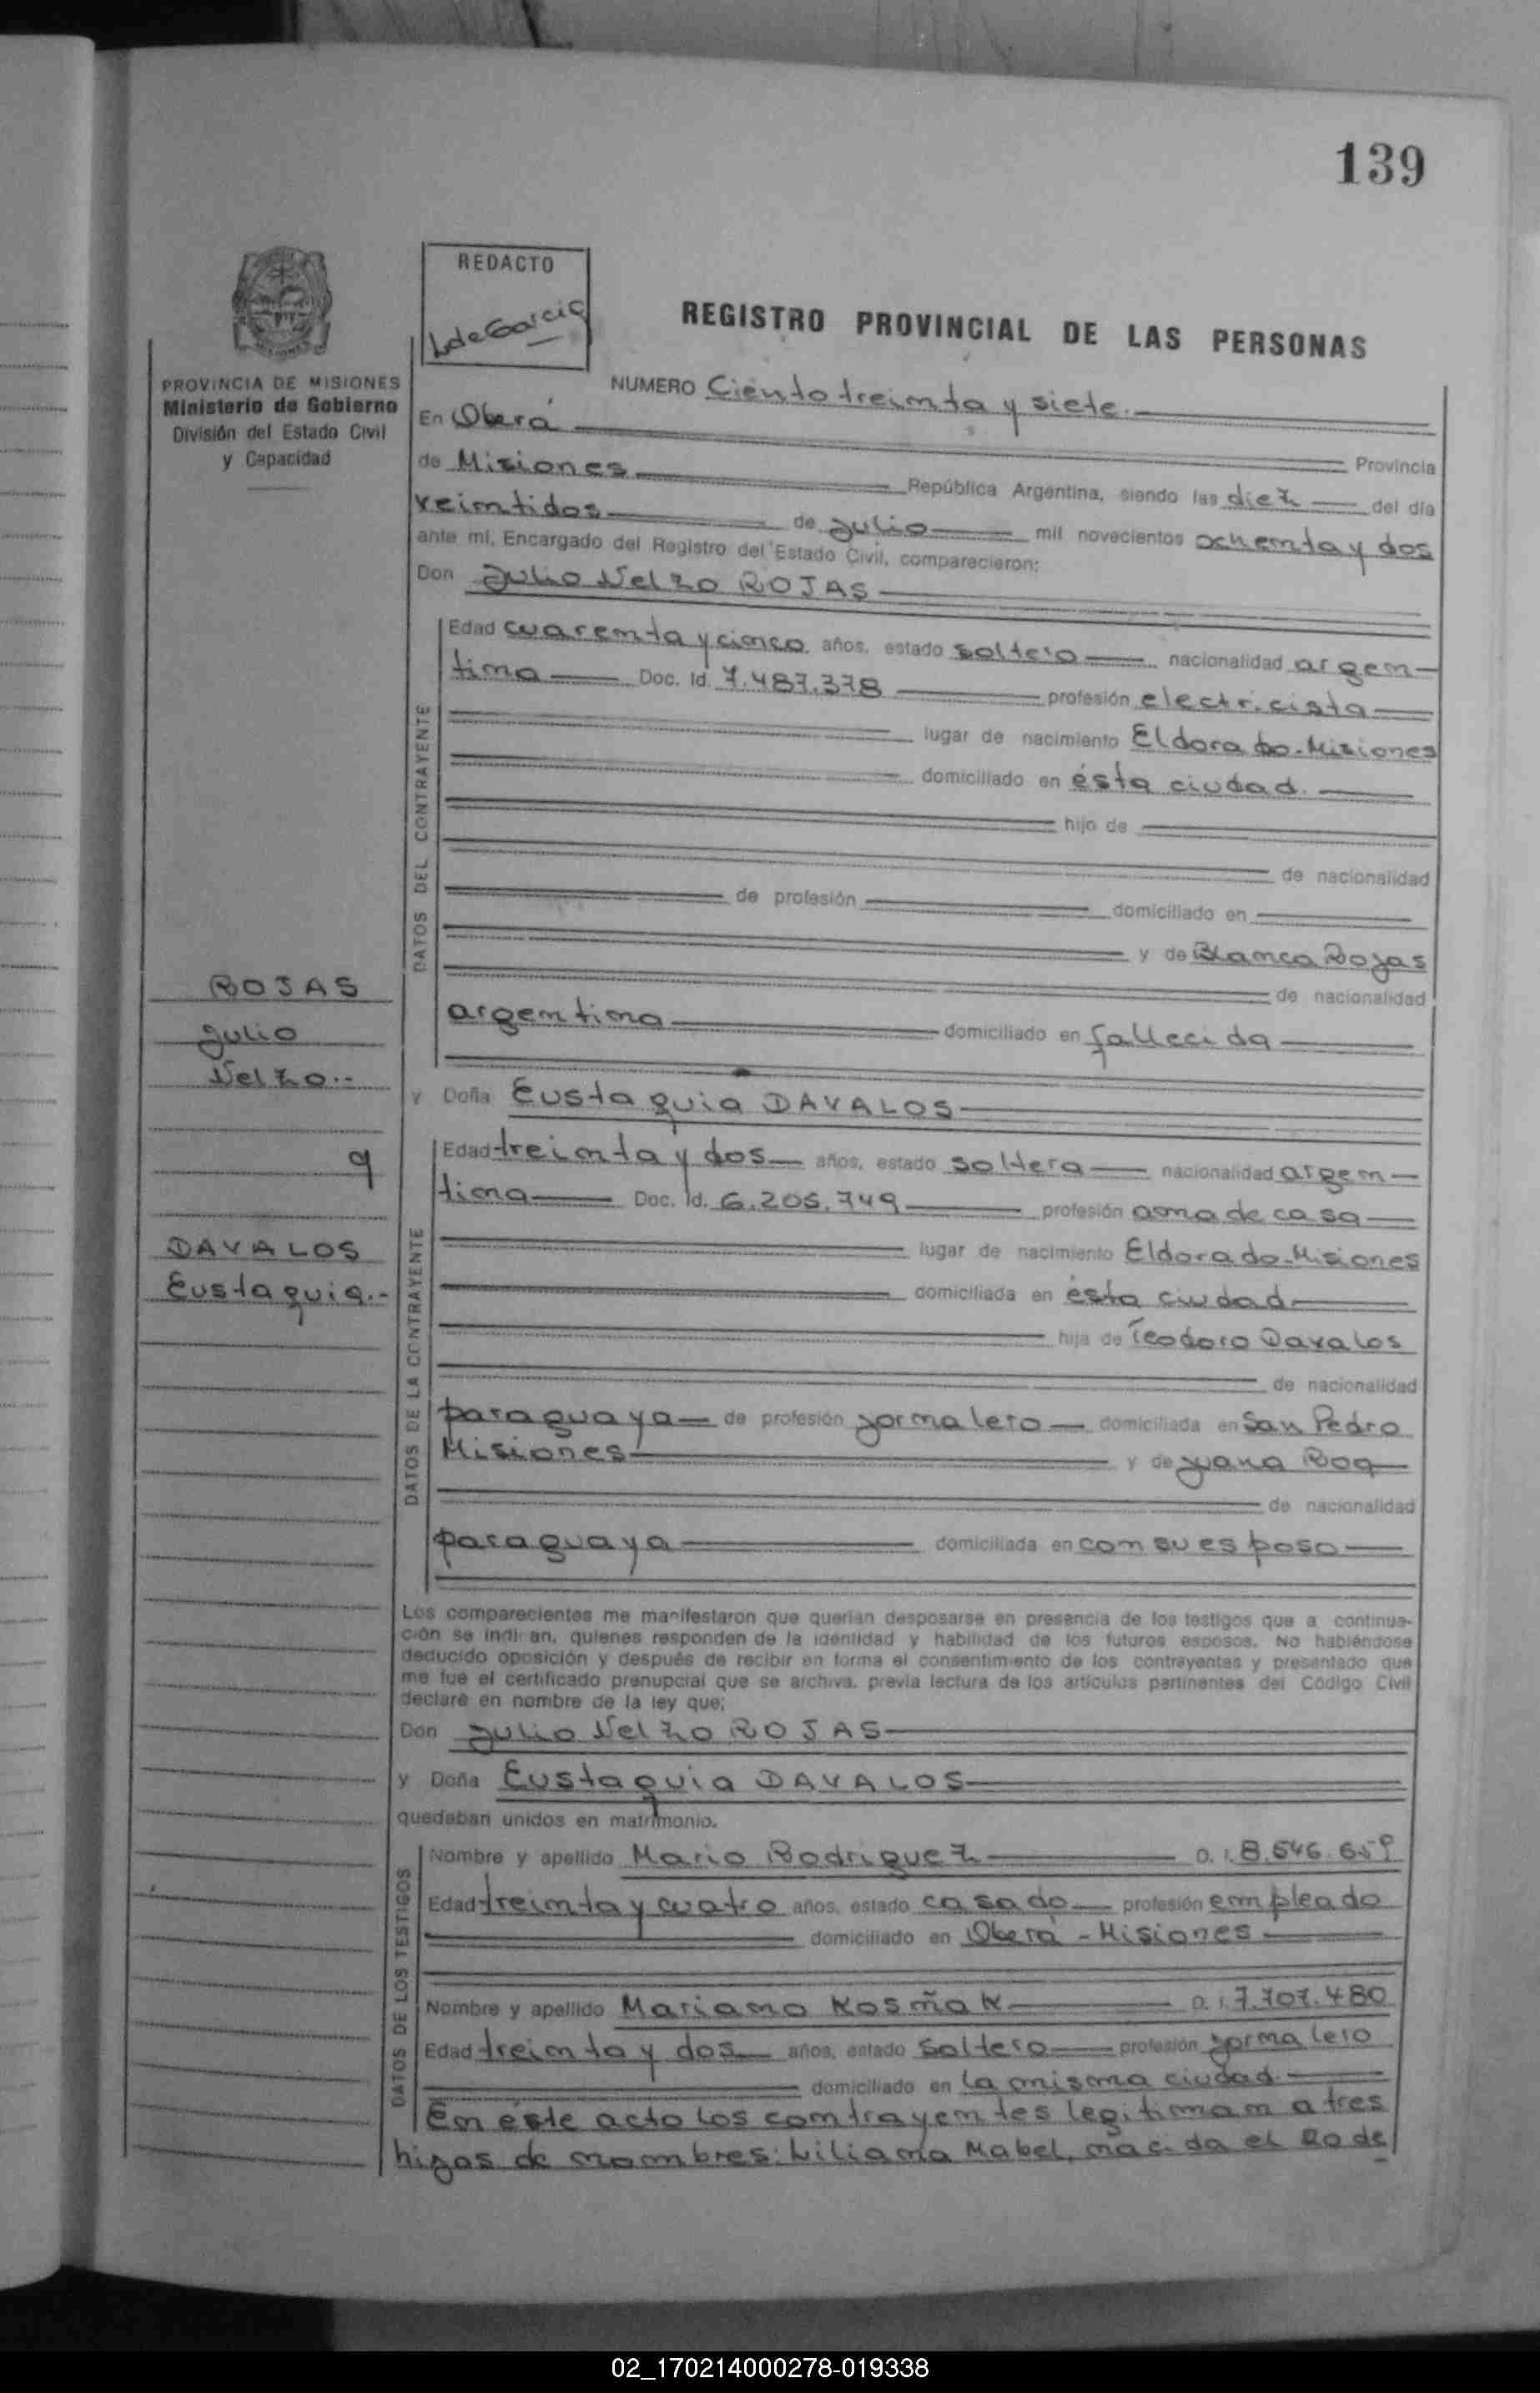 139
REDACTO
LdeGarcia
REGISTRO PROVINCIAL DE LAS PERSONAS
PROVINCIA DE MISIONES
Ministerio de Gobierno
División del Estado Civil
y Capacidad
NUMERO Ciento treinta y siete.
En Oberá Provincia
de Misiones República Argentina, siendo las diez del día
veintidos de Julio mil novecientos ochenta y dos
ante mí, Encargado del Registro del Estado Civil, comparecieron:
Don Julio Nelzo ROJAS
DATOS DEL CONTRAYENTE
Edad cuarenta y cinco años, estado soltero nacionalidad argen-
tina Doc. Id. 7.487.378 profesión electricista
lugar de nacimiento Eldorado-Misiones
domiciliado en ésta ciudad.
hijo de
de nacionalidad
de profesión domiciliado en
y de Blanca Rojas
de nacionalidad
argentina domiciliado en fallecida
ROJAS
Julio
Nelzo.-
y
DAVALOS
Eustaquia.-
y Doña Eustaquia DAVALOS
DATOS DE LA CONTRAYENTE
Edad treinta y dos años, estado soltera nacionalidad argen-
tina Doc. Id. 6.205.749 profesión ama de casa
lugar de nacimiento Eldorado-Misiones
domiciliada en ésta ciudad
hija de Teodoro Davalos
de nacionalidad
paraguaya de profesión jornalero domiciliada en San Pedro
Misiones y de Juana Roa
de nacionalidad
paraguaya domiciliada en con su esposo
Los comparecientes me manifestaron que querían desposarse en presencia de los testigos que a continua-
ción se indi an, quienes responden de la identidad y habilidad de los futuros esposos. No habiéndose
deducido oposición y después de recibir en forma el consentimiento de los contrayentes y presentado que
me fue el certificado prenupcial que se archiva, previa lectura de los artículos pertinentes del Código Civil
declaré en nombre de la ley que;
Don Julio Nelzo ROJAS
y Doña Eustaquia DAVALOS
quedaban unidos en matrimonio.
DATOS DE LOS TESTIGOS
Nombre y apellido Mario Rodriguez D. I. 8.546.659
Edad treinta y cuatro años, estado casado profesión empleado
domiciliado en Oberá - Misiones
Nombre y apellido Mariano Kosñak D. I. 7.707.480
Edad treinta y dos años, estado soltero profesión jornalero
domiciliado en la misma ciudad.
En éste acto los contrayentes legitiman a tres
hijos de nombres: Liliana Mabel, nacida el 20 de
02_170214000278-019338